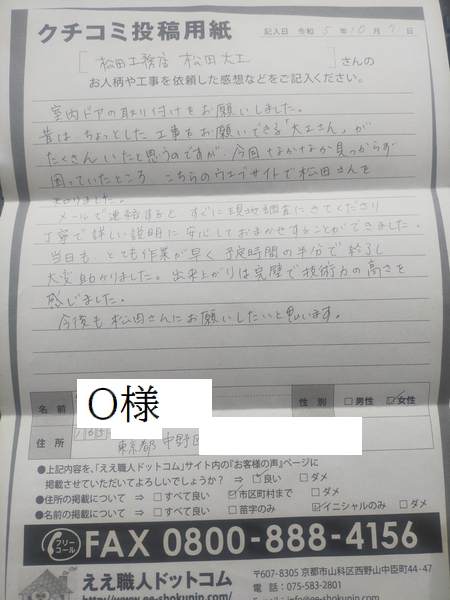 クチコミ投稿用紙
記入日 令和 5年 10月 7日
[松田工務店 松田大工]さんの
お人柄や工事を依頼した感想などをご記入ください。
室内ドアの取り付けをお願いしました。
昔は、ちょっとした工事をお願いできる「大工さん」が
たくさんいたと思うのですが、今回なかなか見つからず
困っていたところ、こちらのウェブサイトで松田さんを
知りました。
メールで連絡すると、すぐに現地調査にきてくださり
丁寧で詳しい説明に安心しておまかせすることができました。
当日も、とても作業が早く予定時間の半分で終了し
大変助かりました。出来上がりは完璧で技術力の高さを
感じました。
今後も松田さんにお願いしたいと思います。
名前 O様 性別 □男性 ☑女性
住所
東京都 中野区
●上記内容を、「ええ職人ドットコム」サイト内の『お客様の声』ページに
掲載させていただいてよろしいでしょうか? ⇒ ☑良い □ダメ
●住所の掲載について ⇒ □すべて良い ☑市区町村まで □ダメ
●名前の掲載について ⇒ □すべて良い □苗字のみ ☑イニシャルのみ □ダメ
フリーコール FAX 0800-888-4156
ええ職人ドットコム
http://www.ee-shokunin.com
〒607-8305 京都市山科区西野山中臣町44-47
電話:075-583-2801
Email:info@ee-shokunin.com